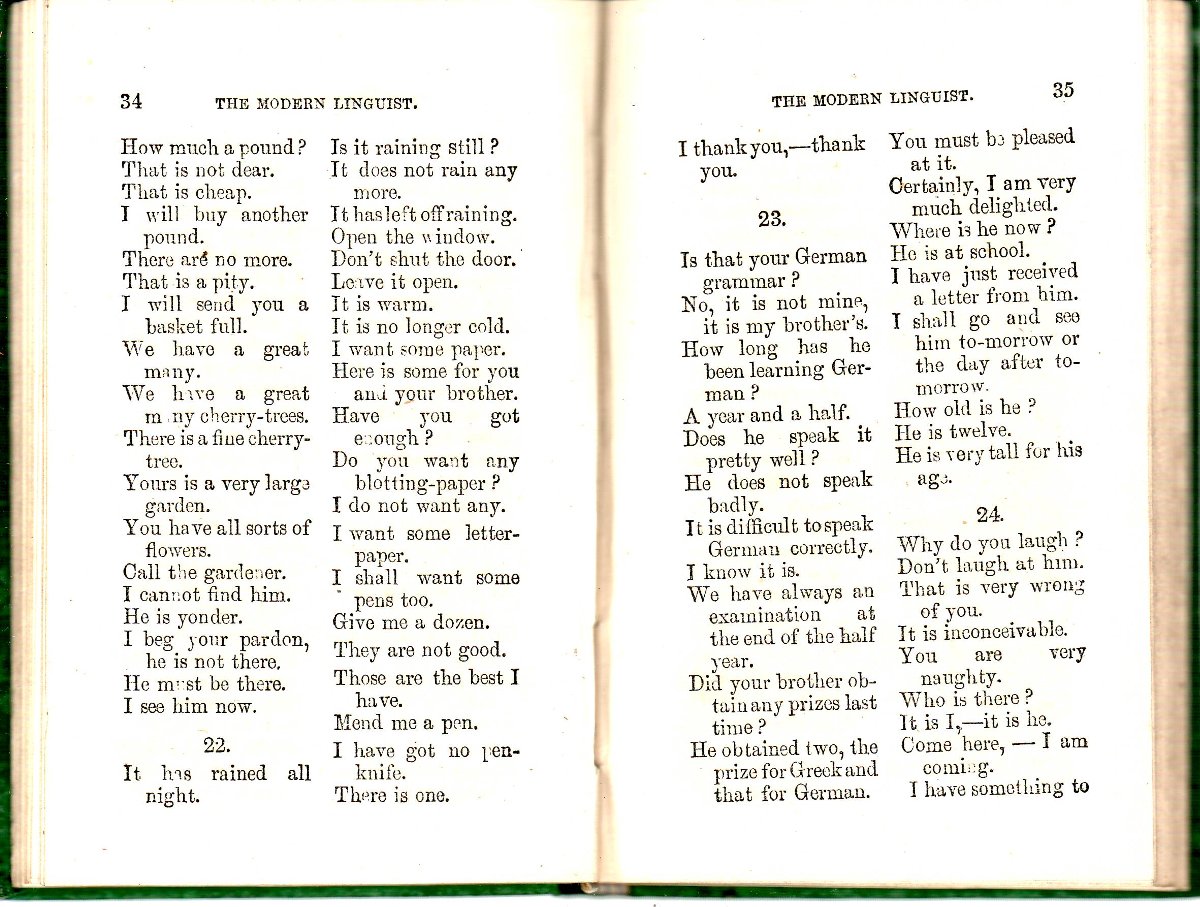 34
THE MODERN LINGUIST.
How much a pound?
That is not dear.
That is cheap.
I will buy another
pound.
There are no more.
That is a pity.
I will send you a
basket full.
We have a great
many.
We have a great
many cherry-trees.
There is a fine cherry-
tree.
Yours is a very large
garden.
You have all sorts of
flowers.
Call the gardener.
I cannot find him.
He is yonder.
I beg your pardon,
he is not there.
He must be there.
I see him now.
22.
It has rained all
night.
Is it raining still?
It does not rain any
more.
It has left off raining.
Open the window.
Don't shut the door.
Leave it open.
It is warm.
It is no longer cold.
I want some paper.
Here is some for you
and your brother.
Have you got
enough?
Do you want any
blotting-paper?
I do not want any.
I want some letter-
paper.
I shall want some
pens too.
Give me a dozen.
They are not good.
Those are the best I
have.
Mend me a pen.
I have got no pen-
knife.
There is one.
THE MODERN LINGUIST.
35
I thank you,—thank
you.
23.
Is that your German
grammar?
No, it is not mine,
it is my brother's.
How long has he
been learning Ger-
man?
A year and a half.
Does he speak it
pretty well?
He does not speak
badly.
It is difficult to speak
German correctly.
I know it is.
We have always an
examination at
the end of the half
year.
Did your brother ob-
tain any prizes last
time?
He obtained two, the
prize for Greek and
that for German.
You must be pleased
at it.
Certainly, I am very
much delighted.
Where is he now?
He is at school.
I have just received
a letter from him.
I shall go and see
him to-morrow or
the day after to-
morrow.
How old is he?
He is twelve.
He is very tall for his
age.
24.
Why do you laugh?
Don't laugh at him.
That is very wrong
of you.
It is inconceivable.
You are very
naughty.
Who is there?
It is I,—it is he.
Come here, — I am
coming.
I have something to